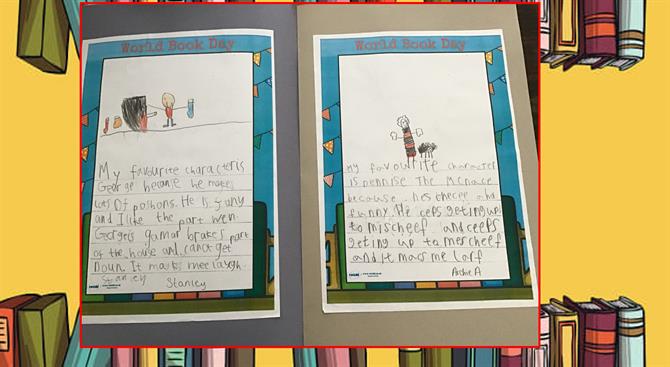 World Book Day
My favourite character is
George because he makes
lots of poshons. He is funy
and I like the part wen
George's gamar brakes part
of the house and canot get
doun. It maks mee laugh.
Stanley
Stanley
World Book Day
my favourite character
is Dennise The Menace
because hes cheecee and
funny. He ceeps getting up
to mischeef and ceeps
getting up to mercheef
and it macs me larf
Archie A